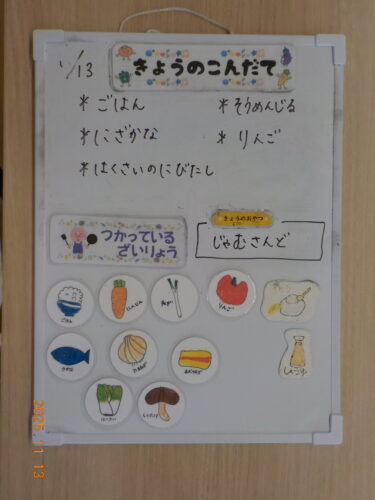 11/13
きょうのこんだて
*ごはん
*そうめんじる
*にざかな
*りんご
*はくさいのにびたし
きょうのおやつ
つかっている
ざいりょう
じゃむさんど
ごはん
にんじん
ねぎ
りんご
さかな
たまねぎ
あぶらあげ
しょうゆ
はくさい
しいたけ
2025 11 13